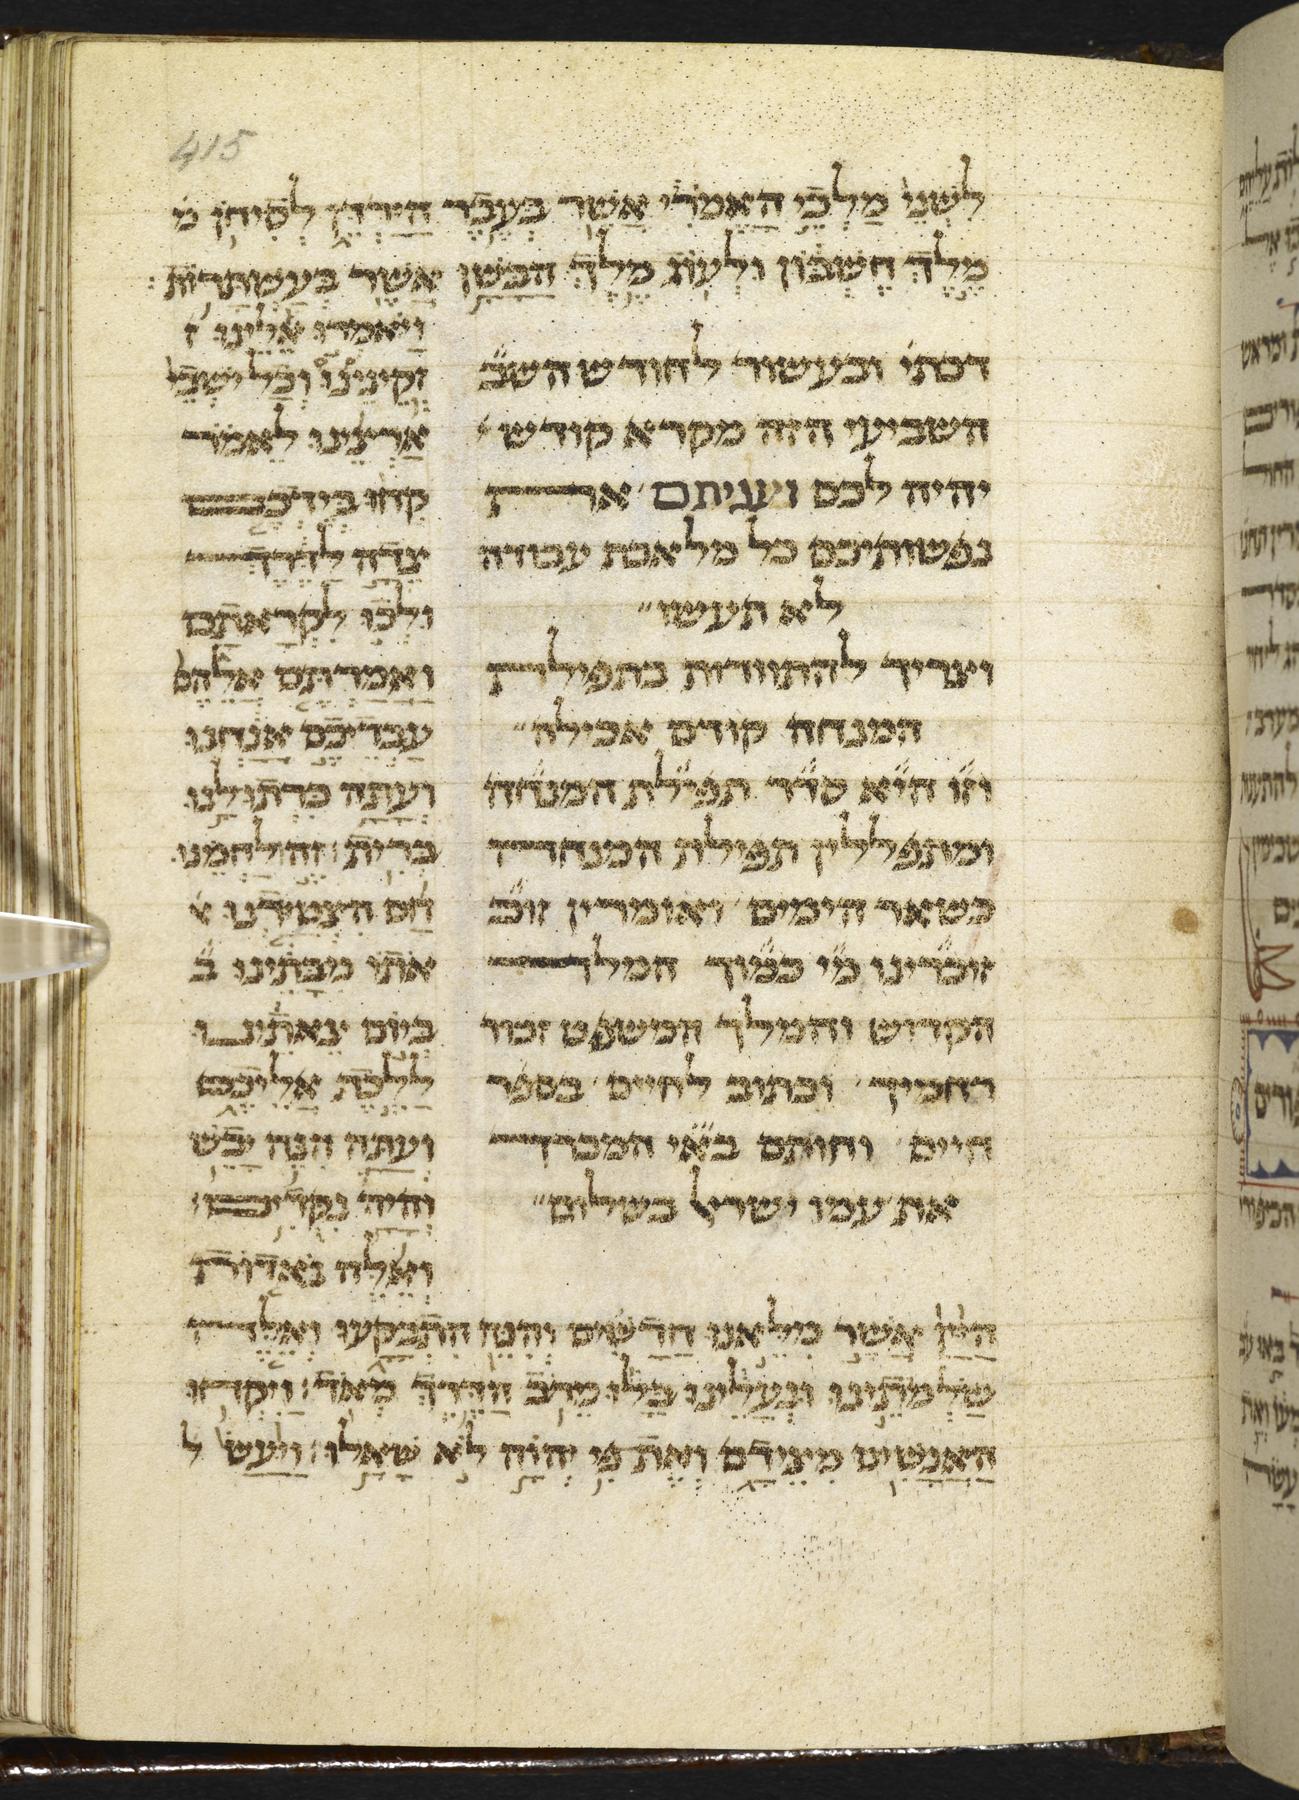 415
לשני מלכי האמרי אשר בעבר הירדן לסיחן מ
מלך חשבון ולעוג מלך הבשן אשר בעשתרות׃
דכתי׳ ובעשור לחודש השב
השביעי הזה מקרא קודש
יהיה לכם ועניתם את
נפשותיכם כל מלאכת עבודה
לא תעשו״
וצריך להתוודות בתפילת
המנחה קודם אכילה״
וזו היא סדר תפילת המנחה
ומתפללין תפילת המנחה
כשאר הימים ואומרין זוכ
זוכרינו מי כמוך המלך
הקדוש והמלך המשפט זכור
רחמיך וכתוב לחיים בספר
חיים וחותם בא״י המברך
את עמו ישראל בשלום״
ויאמרו אלינו ז
זקינינו וכל ישב
ארצנו לאמר
קחו בידכם
צדה לדרך
ולכו לקראתם
ואמרתם אליהם
עבדיכם אנחנו
ועתה כרתו לנו
ברית׃ זה לחמנו
חם הצטידנו א
אתו מבתינו ב
ביום צאתנו
ללכת אליכם
ועתה הנה יבש
והיה נקדים׃
ואלה נאדות
היין אשר מלאנו חדשים והנה התבקעו ואלה
שלמתינו ונעלינו בלו מרב הדרך מאד׃ ויקחו
האנשים מצידם ואת פי יהוה לא שאלו׃ ויעש ל